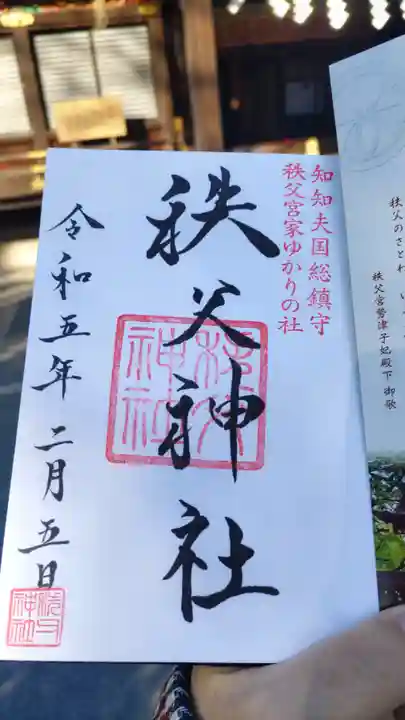 知知夫国総鎮守
秩父宮家ゆかりの社
秩父神社
令和五年二月五日
秩父神社
秩父神社
秩父のさとわ
秩父宮勢津子妃殿下 御歌